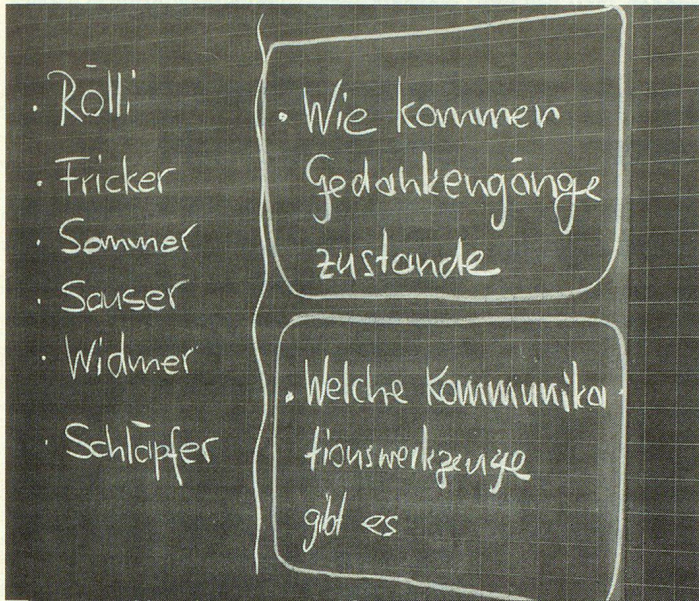 · Rölli
· Fricker
· Sommer
· Sauser
· Widmer
· Schläpfer
· Wie kommen
Gedankengänge
zustande
· Welche Kommunika
tionswerkzeuge
gibt es